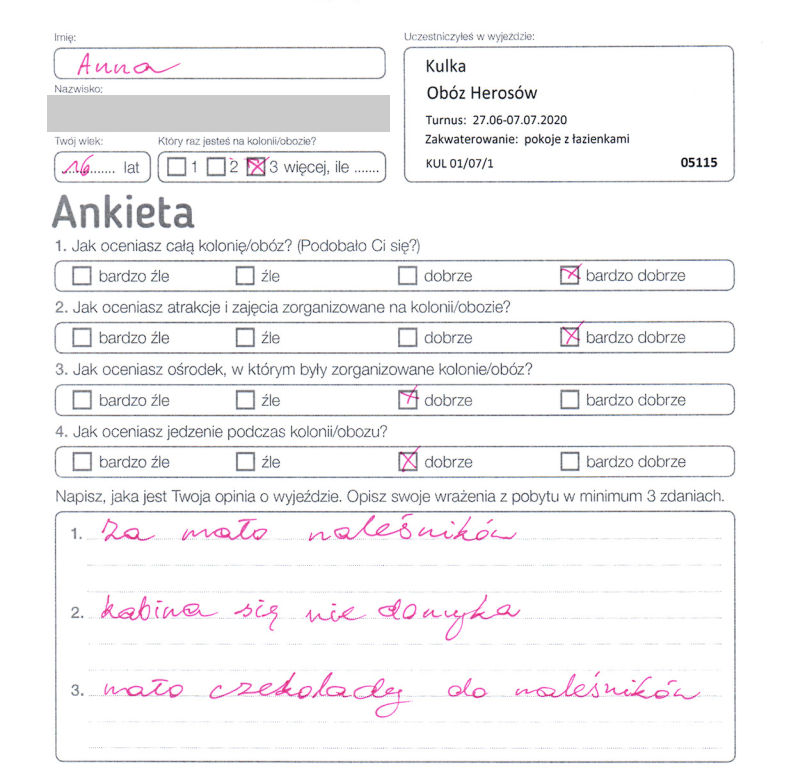 Imię:
Anna
Uczestniczyłeś w wyjeździe:
Kulka
Obóz Herosów
Turnus: 27.06-07.07.2020
Zakwaterowanie: pokoje z łazienkami
KUL 01/07/1 05115
Nazwisko:
Twój wiek:
16 lat
Który raz jesteś na kolonii/obozie?
1 2 3 więcej, ile .......
Ankieta
1. Jak oceniasz całą kolonię/obóz? (Podobało Ci się?)
bardzo źle źle dobrze bardzo dobrze
2. Jak oceniasz atrakcje i zajęcia zorganizowane na kolonii/obozie?
bardzo źle źle dobrze bardzo dobrze
3. Jak oceniasz ośrodek, w którym były zorganizowane kolonie/obóz?
bardzo źle źle dobrze bardzo dobrze
4. Jak oceniasz jedzenie podczas kolonii/obozu?
bardzo źle źle dobrze bardzo dobrze
Napisz, jaka jest Twoja opinia o wyjeździe. Opisz swoje wrażenia z pobytu w minimum 3 zdaniach.
1. Za mało naleśników
2. kabina się nie domyka
3. mało czekolady do naleśników